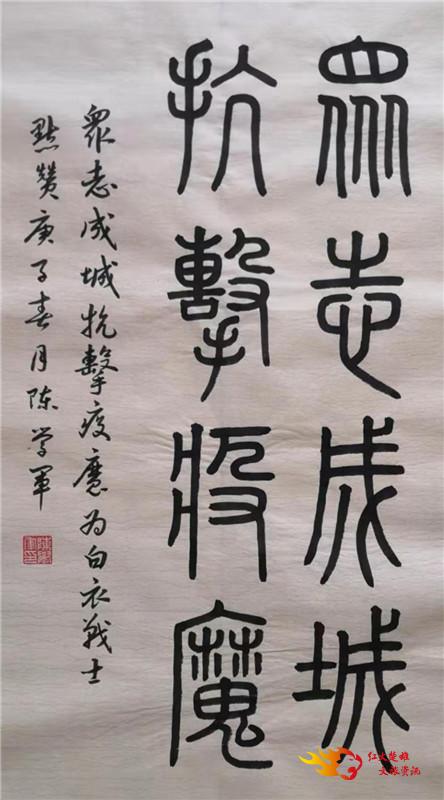 眾志成城
抗擊疫魔
眾志成城抗擊疫魔为白衣戰士
點贊庚子春月陈学军
红火楚雄
文旅资讯